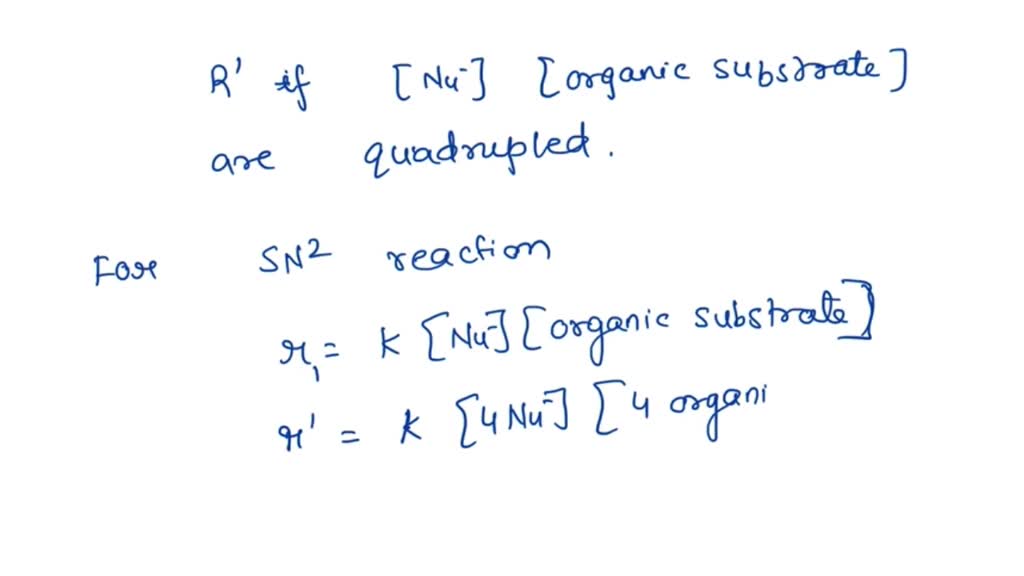 R' if [Nu⁻] [organic substrate]
are quadrupled.
For SN2 reaction
r₁ = K [Nu⁻] [organic substrate]
r' = K [4Nu⁻] [4 organi